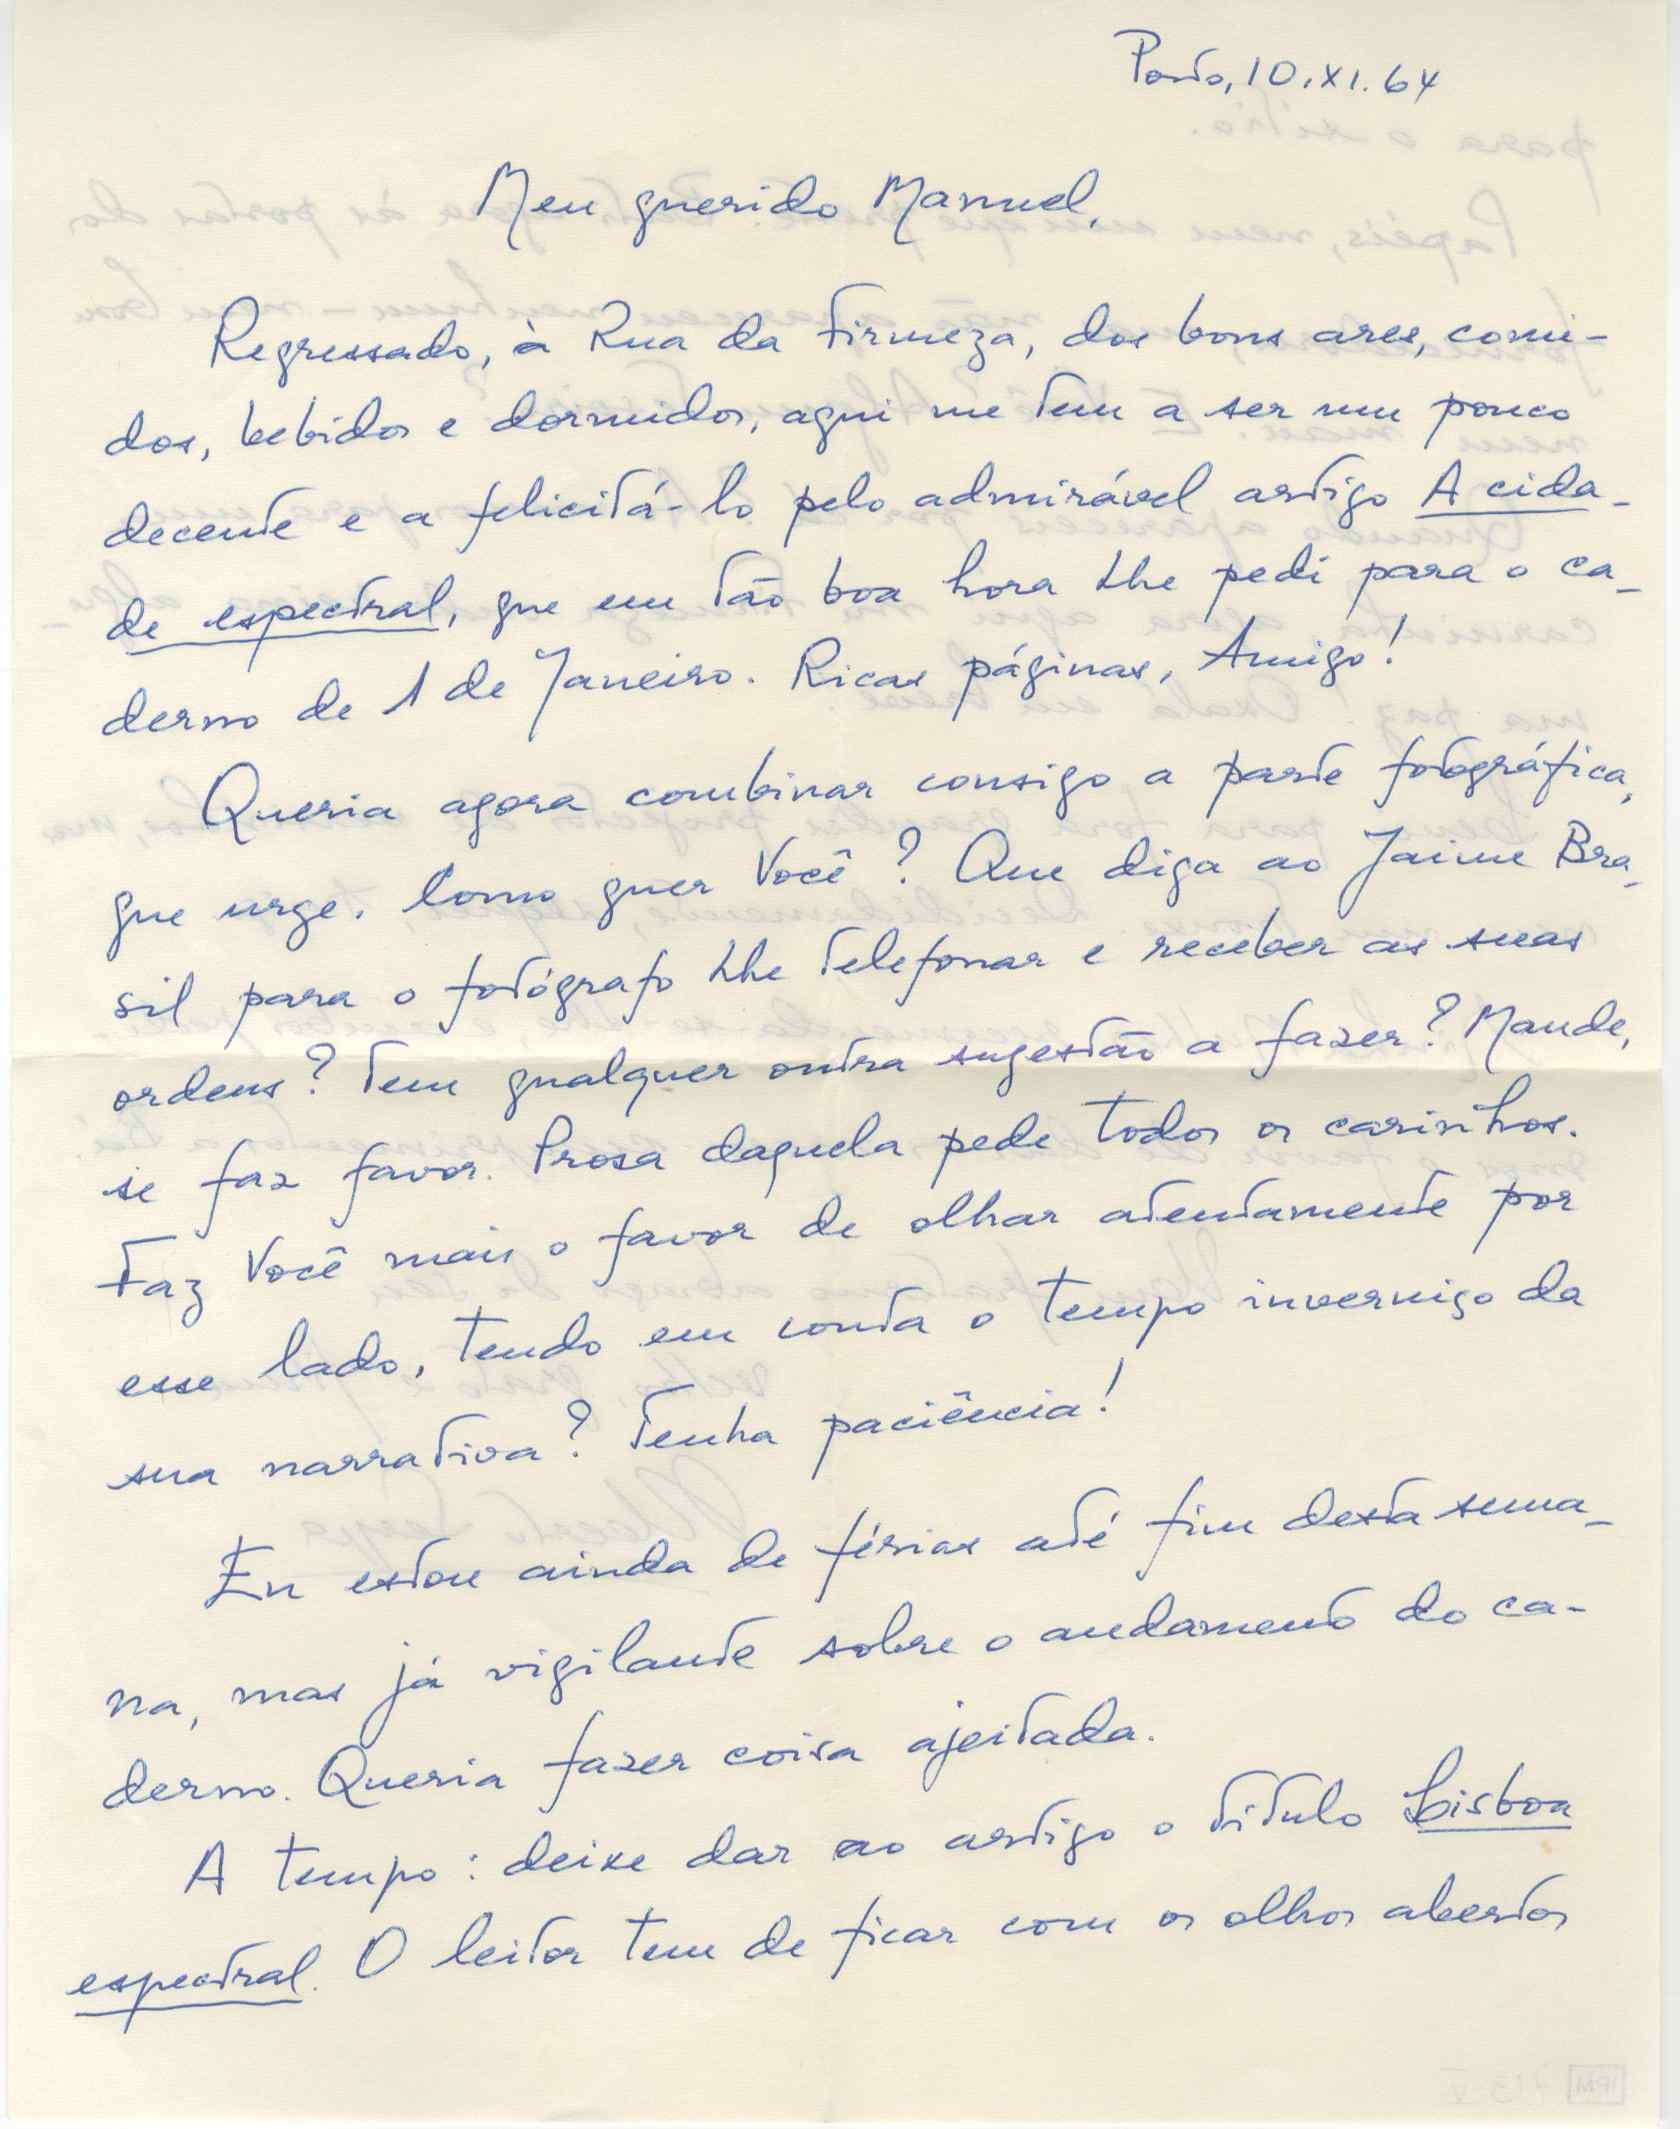 Porto, 10.XI.64
Meu querido Manuel,
Regressado, à Rua da Firmeza, dos bons ares, comi-
dos, bebidos e dormidos, aqui me tem a ser um pouco
decente e a felicitá-lo pelo admirável artigo A cida-
de espectral, que em tão boa hora Lhe pedi para o ca-
derno de 1 de Janeiro. Ricas páginas, Amigo!
Queria agora combinar consigo a parte fotográfica,
que urge. Como quer Você? Que diga ao Jaime Bra-
sil para o fotógrafo Lhe telefonar e receber as suas
ordens? Tem qualquer outra sugestão a fazer? Mande,
se faz favor. Prosa daquela pede todos os carinhos.
Faz Você mais o favor de olhar atentamente por
esse lado, tendo em conta o tempo invernigo da
sua narrativa? Tenha paciência!
Eu estou ainda de férias até fim desta sema-
na, mas já vigilante sobre o andamento do ca-
derno. Queria fazer coisa ajeitada.
A tempo: deixe dar ao artigo o título Lisboa
espectral. O leitor tem de ficar com os olhos abertos